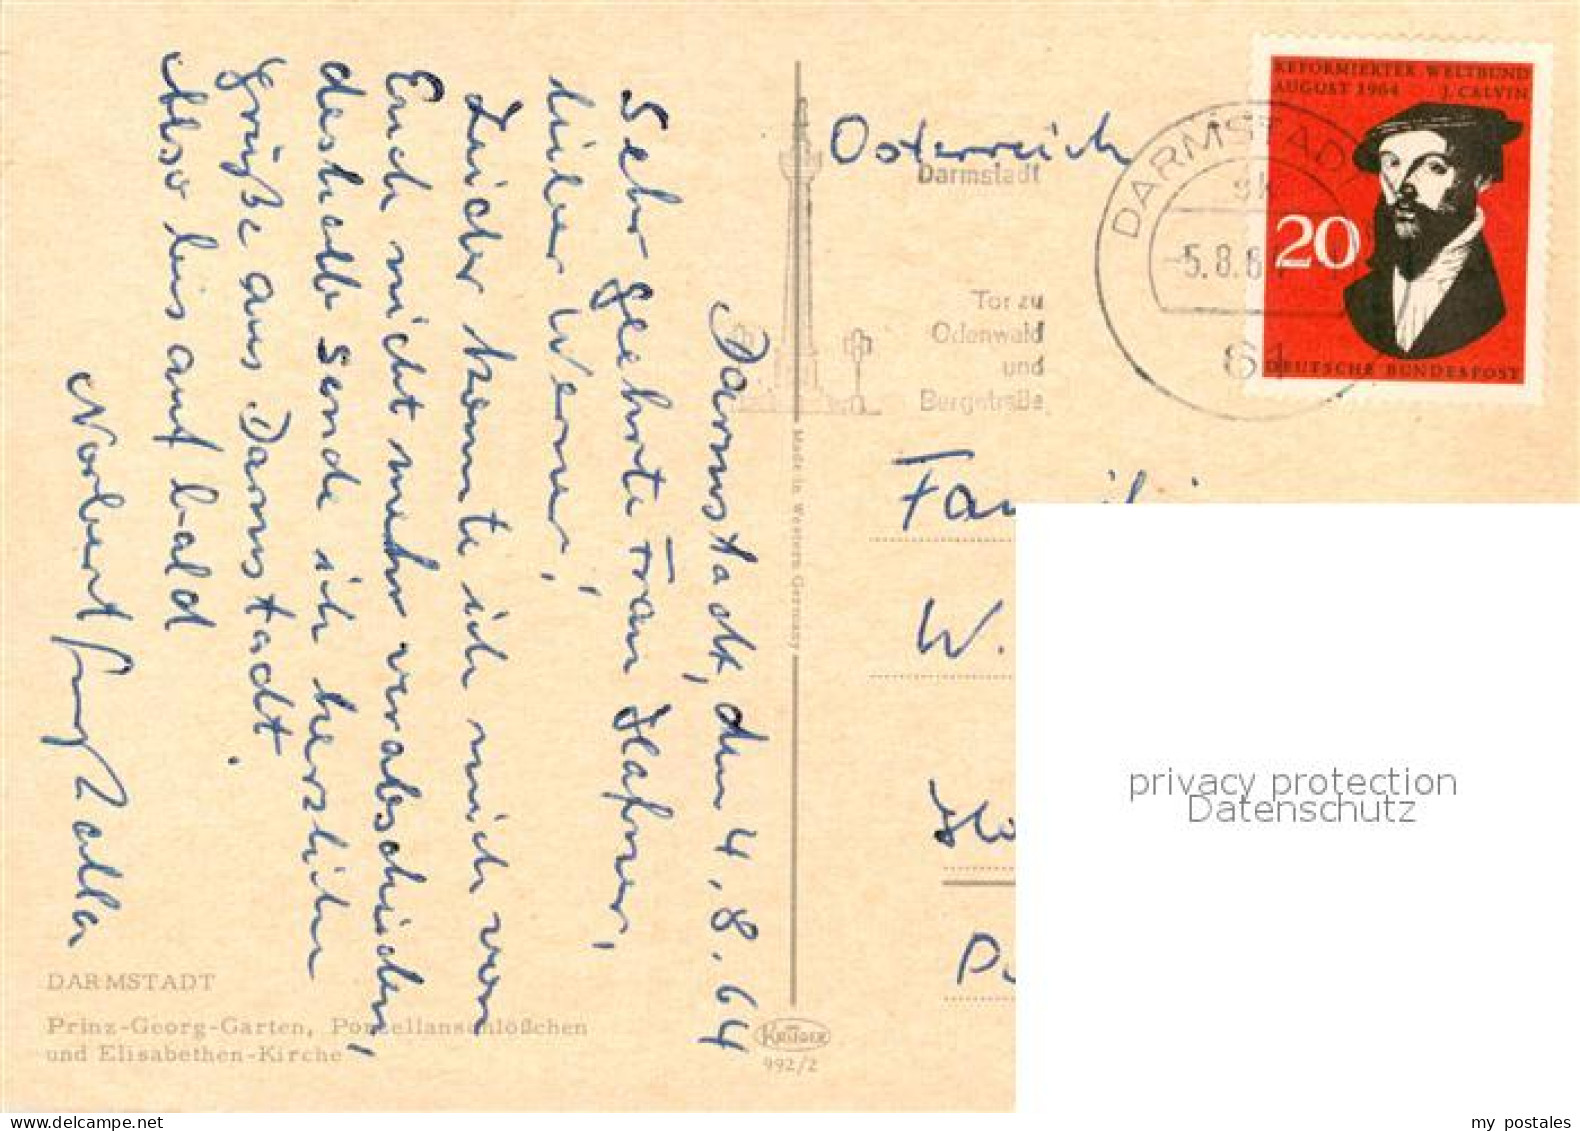 Darmstadt, den 4.8.64
Sehr geehrte Frau Hafner,
lieber Werner!
Leider konnte ich mich von
Euch nicht mehr verabschieden,
deshalb sende ich herzliche
Grüße aus Darmstadt.
Also bis auf bald
Norbert
Österreich
Darmstadt
Tor zu
Odenwald
und
Bergstraße
DARMSTADT
-5.8.6
61
REFORMIERTER WELTBUND
AUGUST 1964 J. CALVIN
20
DEUTSCHE BUNDESPOST
W.
Made in Western Germany
privacy protection
Datenschutz
DARMSTADT
Prinz-Georg-Garten, Porzellanschlößchen
und Elisabethen-Kirche
KRÜGER
992/2
www.ansichtskartenversand.com
my postales